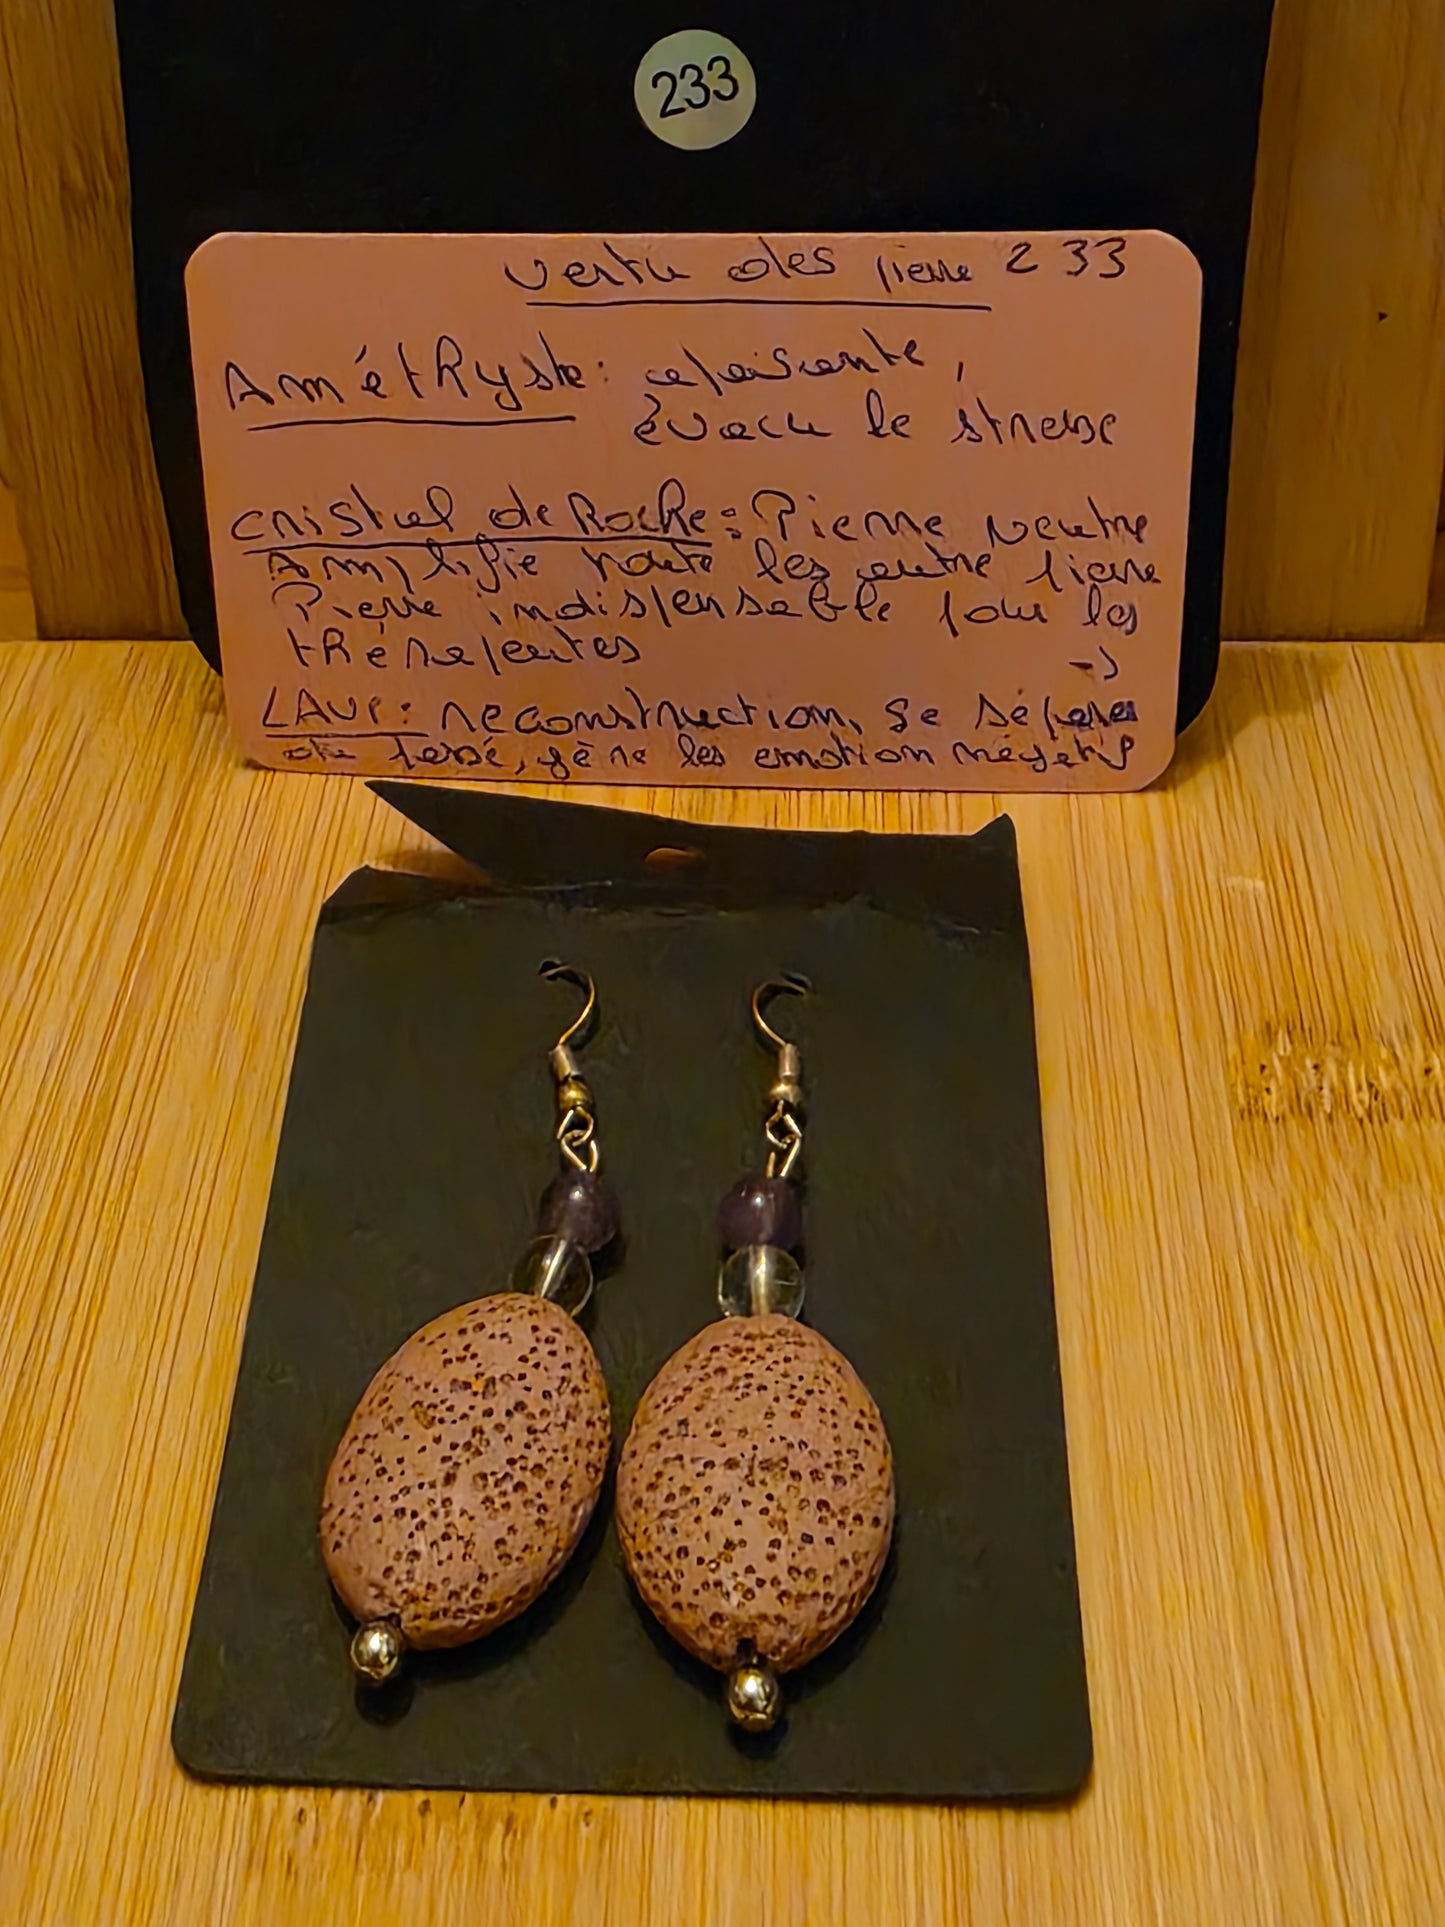 233
Vertu des pierre 233
Améthryste: apaisante,
évacu le stresse
cristal de Roche: Pierre neutre
Amplifie toute les autre pierre
Pierre indispensable pour les
thérapeutes →
LAVE: reconstruction, se séparer
du passé, gère les emotion négatif